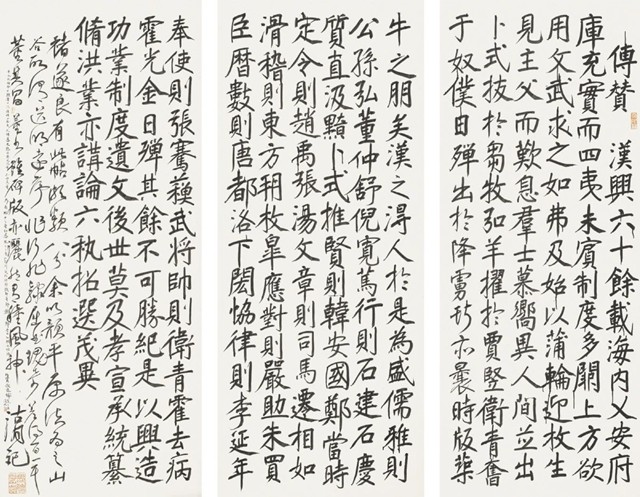 傳贊 漢興六十餘載海內乂安府
庫充實而四夷未賓制度多闕上方欲
用文武求之如弗及始以蒲輪迎枚生
見主父而歎息羣士慕嚮異人間並出
卜式拔於芻牧弘羊擢於賈豎衛青奮
于奴僕日磾出於降虜斯亦曩時版築
牛之朋矣漢之得人於是為盛儒雅則
公孫弘董仲舒倪寬篤行則石建石慶
質直汲黯卜式推賢則韓安國鄭當時
定令則趙禹張湯文章則司馬遷相如
滑稽則東方朔枚皋應對則嚴助朱買
臣曆數則唐都洛下閎協律則李延年
奉使則張騫蘓武將帥則衛青霍去病
霍光金日磾其餘不可勝紀是以興造
功業制度遺文後世莫及孝宣承統纂
脩洪業亦講論六執招選茂異
褚遂良有此帖絕類八分余以顏平原法為之山
谷所謂送明遠序非行非隸屈曲瑰奇